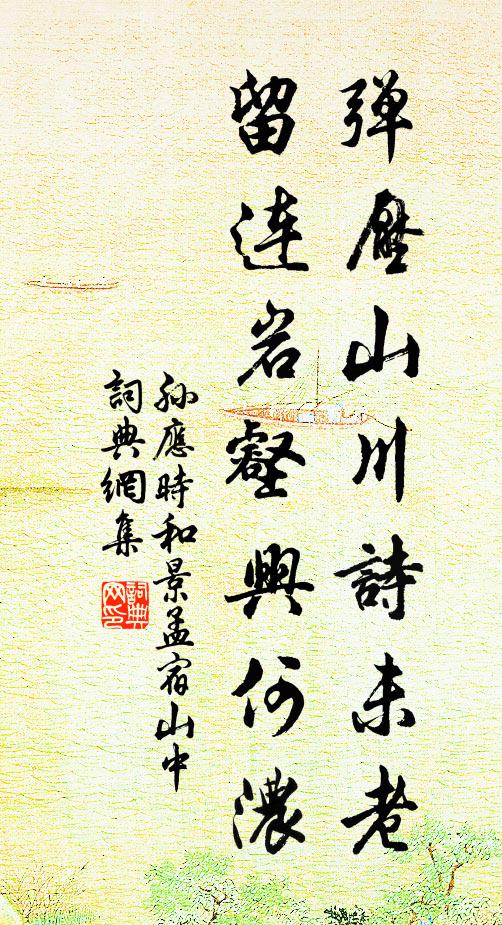 弹壓山川詩未老
留连岩壑興何濃
孙應時和景孟宿山中
詞典網集
詞典网印